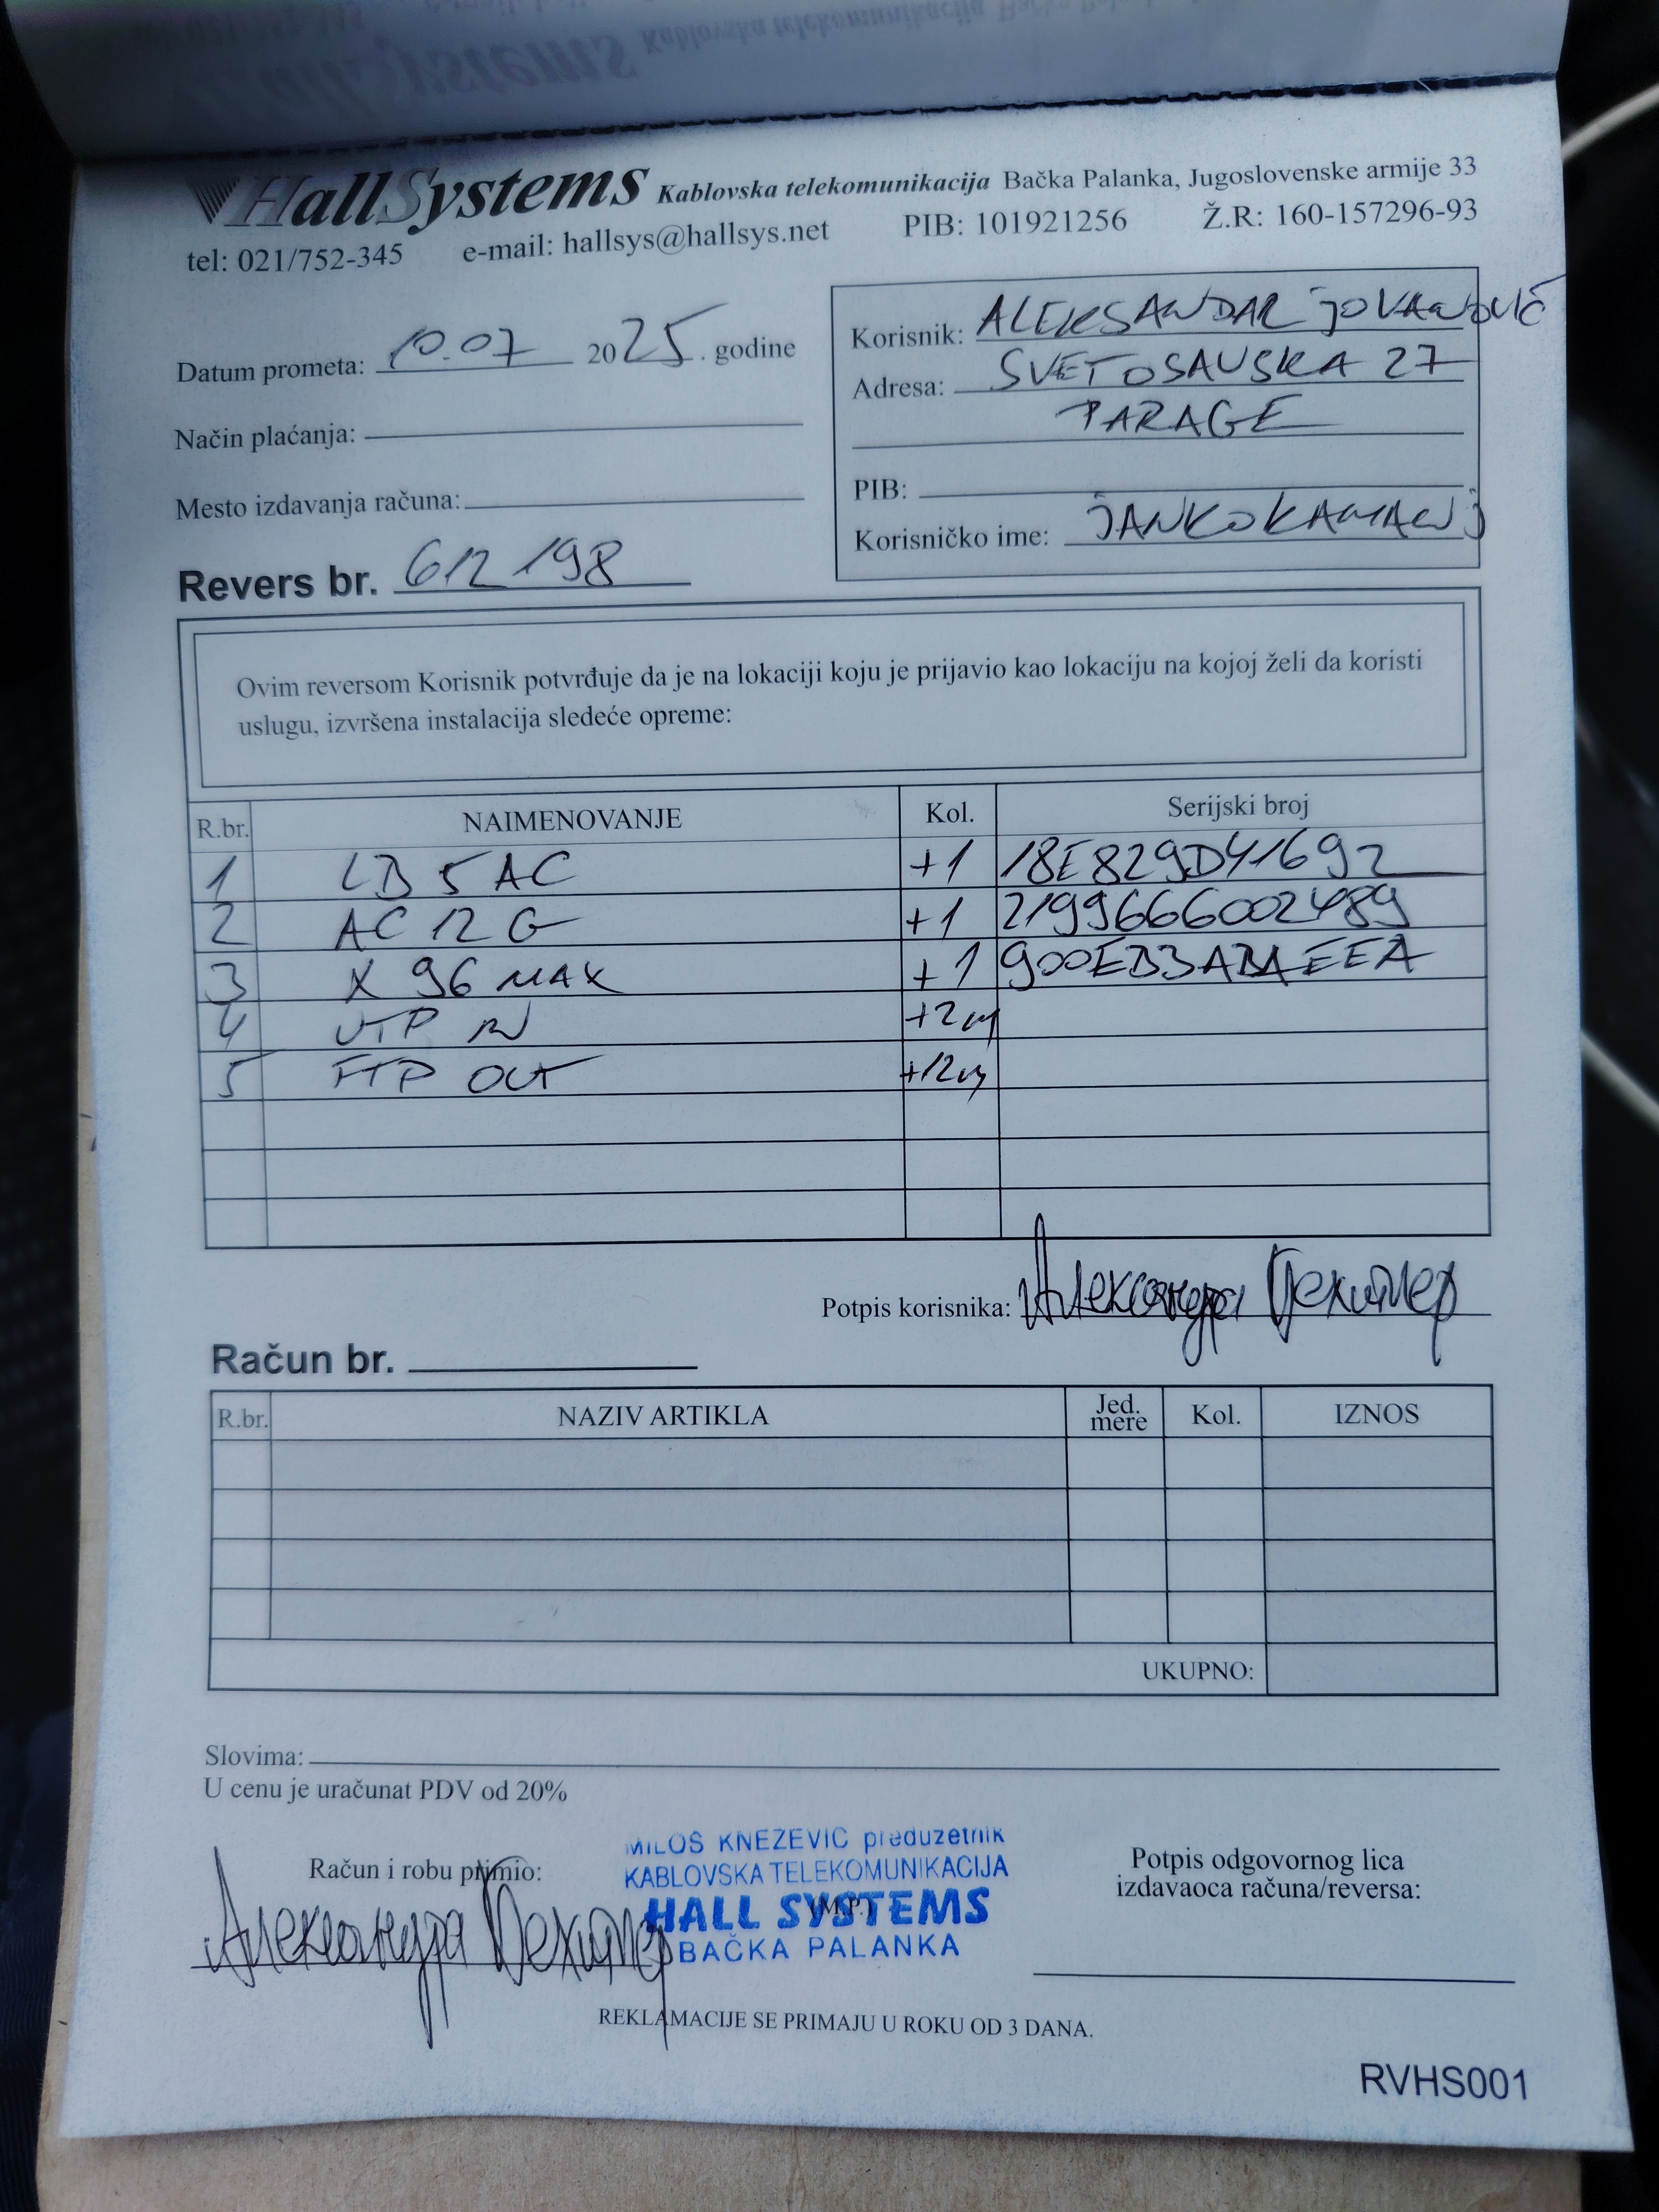 HallSystems Kablovska telekomunikacija Bačka Palanka, Jugoslovenske armije 33
tel: 021/752-345 e-mail: hallsys@hallsys.net PIB: 101921256 Ž.R: 160-157296-93
Datum prometa: 10.07 2025. godine
Način plaćanja:
Mesto izdavanja računa:
Revers br. 612198
Korisnik: ALEKSANDAR JOVANOVIĆ
Adresa: SVETOSAVSKA 27
PARAGE
PIB:
Korisničko ime: JANKOKAMANJ
Ovim reversom Korisnik potvrđuje da je na lokaciji koju je prijavio kao lokaciju na kojoj želi da koristi
uslugu, izvršena instalacija sledeće opreme:
R.br. NAIMENOVANJE Kol. Serijski broj
1 LB 5 AC +1 18E829D41692
2 AC 12 G +1 2199666002489
3 X 96 MAX +1
4 UTP IN +2m
5 FTP OUT +12m
Potpis korisnika:
Račun br.
R.br. NAZIV ARTIKLA Jed. mere Kol. IZNOS
UKUPNO:
Slovima:
U cenu je uračunat PDV od 20%
Račun i robu primio:
MILOŠ KNEŽEVIĆ preduzetnik
KABLOVSKA TELEKOMUNIKACIJA
HALL SYSTEMS
(M.P.)
BAČKA PALANKA
Potpis odgovornog lica
izdavaoca računa/reversa:
REKLAMACIJE SE PRIMAJU U ROKU OD 3 DANA.
RVHS001